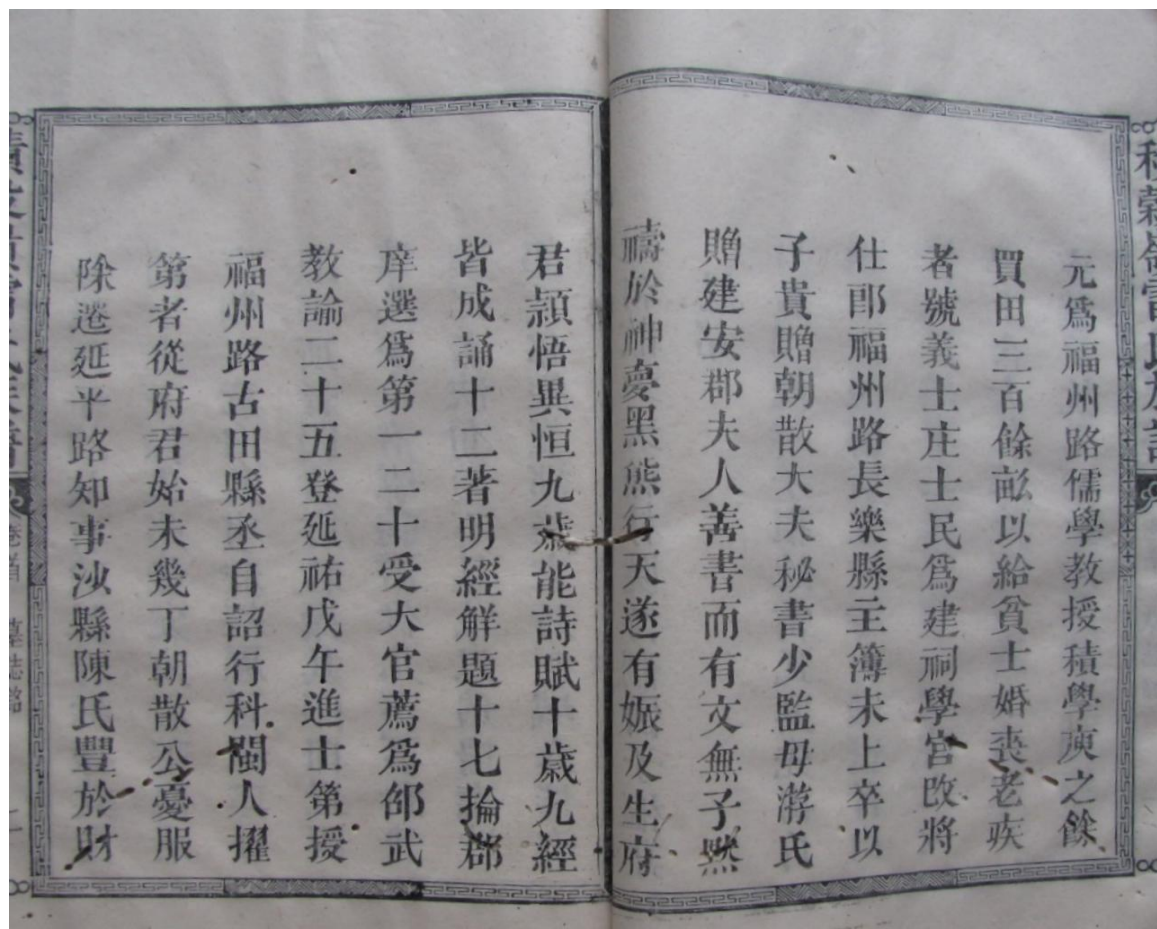 元爲福州路儒學教授積學庾之餘
買田三百餘畝以給貧士婚喪老疾
者號義士庄士民爲建祠學宮改將
仕郎福州路長樂縣主簿未上卒以
子貴贈朝散大夫秘書少監母游氏
贈建安郡夫人善書而有文無子默
禱於神夢黑熊行天遂有娠及生府
君頴悟異恒九歲能詩賦十歲九經
皆成誦十二著明經解題十七掄郡
庠選爲第一二十受大官薦爲邵武
教諭二十五登延祐戊午進士第授
福州路古田縣丞自詔行科閩人擢
第者從府君始未幾丁朝散公憂服
除遷延平路知事沙縣陳氏豐於財
卷首
墓志銘